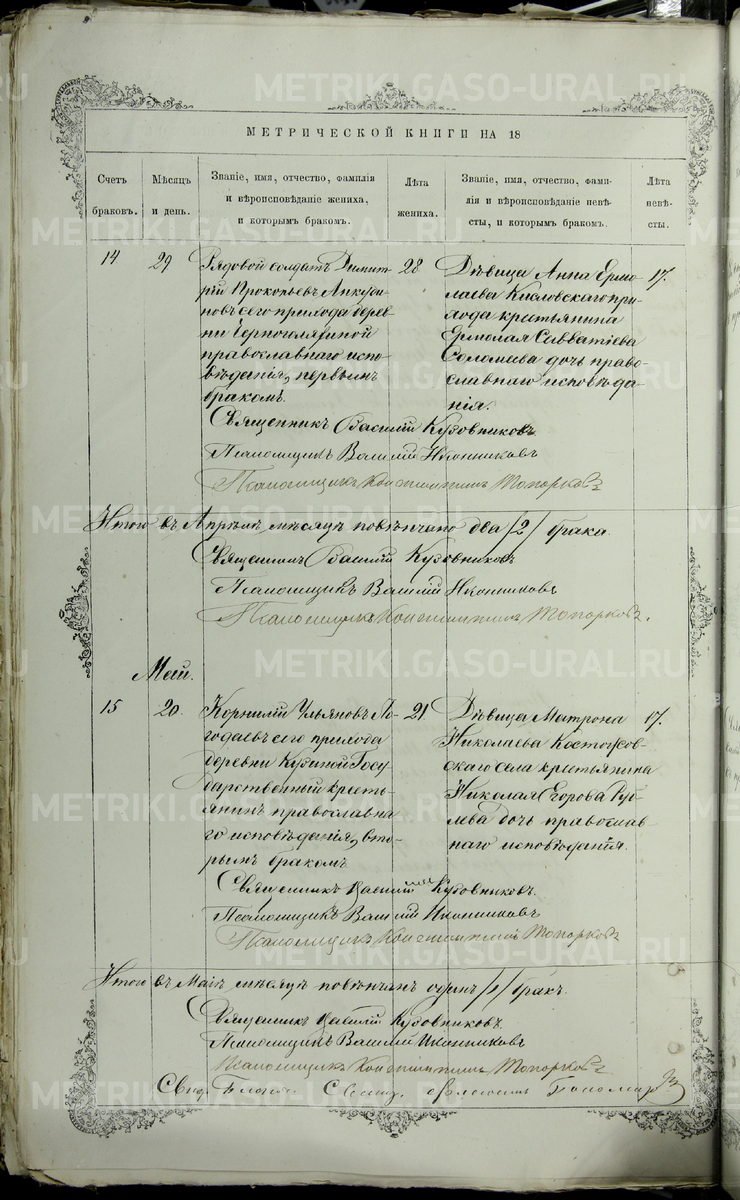 МЕТРИЧЕСКОЙ КНИГИ НА 18
Счетъ
браковъ.
Мѣсяцъ
и день.
Званіе, имя, отчество, фамилія
и вѣроисповѣданіе жениха,
и которымъ бракомъ.
Лѣта
жениха.
Званіе, имя, отчество, фами-
лія и вѣроисповѣданіе невѣ-
сты, и которымъ бракомъ.
Лѣта
невѣ-
сты.
14
29
Рядовой солдатъ Димит-
рій Прокопьевъ
новъ сего прихода дерев-
ни Черноголяриной
православнаго испо-
вѣданія, первымъ
бракомъ.
28
Дѣвица Анна Ермо-
лаева Кисловскаго при-
хода крестьянина
Ермолая Савватіева
Соломеева дочь право-
славнаго исповѣда-
нія.
17.
Священникъ Василій Кудовниковъ
Псаломщикъ Василій Иконниковъ
Псаломщикъ Константинъ Топорковъ
Итого въ Апрѣлѣ мѣсяцѣ повѣнчано два /2/ брака.
Священникъ Василій Кудовниковъ
Псаломщикъ Василій Иконниковъ
Псаломщикъ Константинъ Топорковъ.
Май.
15
20.
Корнилій Ульяновъ Ло-
годаевъ сего прихода
деревни Кудиной Госу-
дарственный кресть-
янинъ православна-
го исповѣданія, вто-
рымъ бракомъ
21
Дѣвица Матрона
Николаева Костоусов-
скаго села крестьянина
Николая Егорова Руб-
лева дочь православ-
наго исповѣданія.
17.
Священникъ Василій Кудовниковъ.
Псаломщикъ Василій Иконниковъ
Псаломщикъ Константинъ Топорковъ
Итого въ Маѣ мѣсяцѣ повѣнчанъ одинъ /1/ бракъ.
Священникъ Василій Кудовниковъ.
Псаломщикъ Василій Иконниковъ
Псаломщикъ Константинъ Топорковъ
METRIKI.GASO-URAL.RU